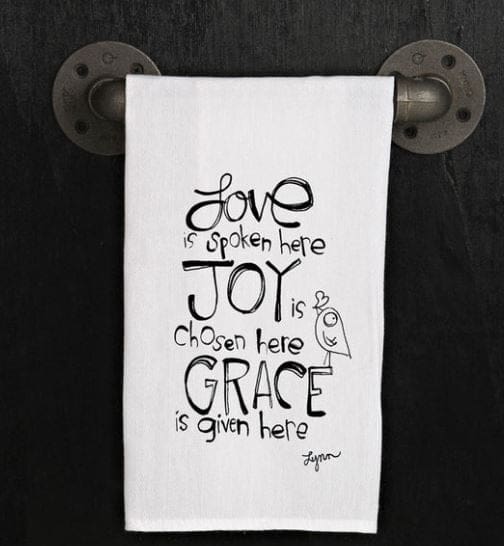 Love
is spoken here
JOY is
chosen here
GRACE
is given here
Lynn